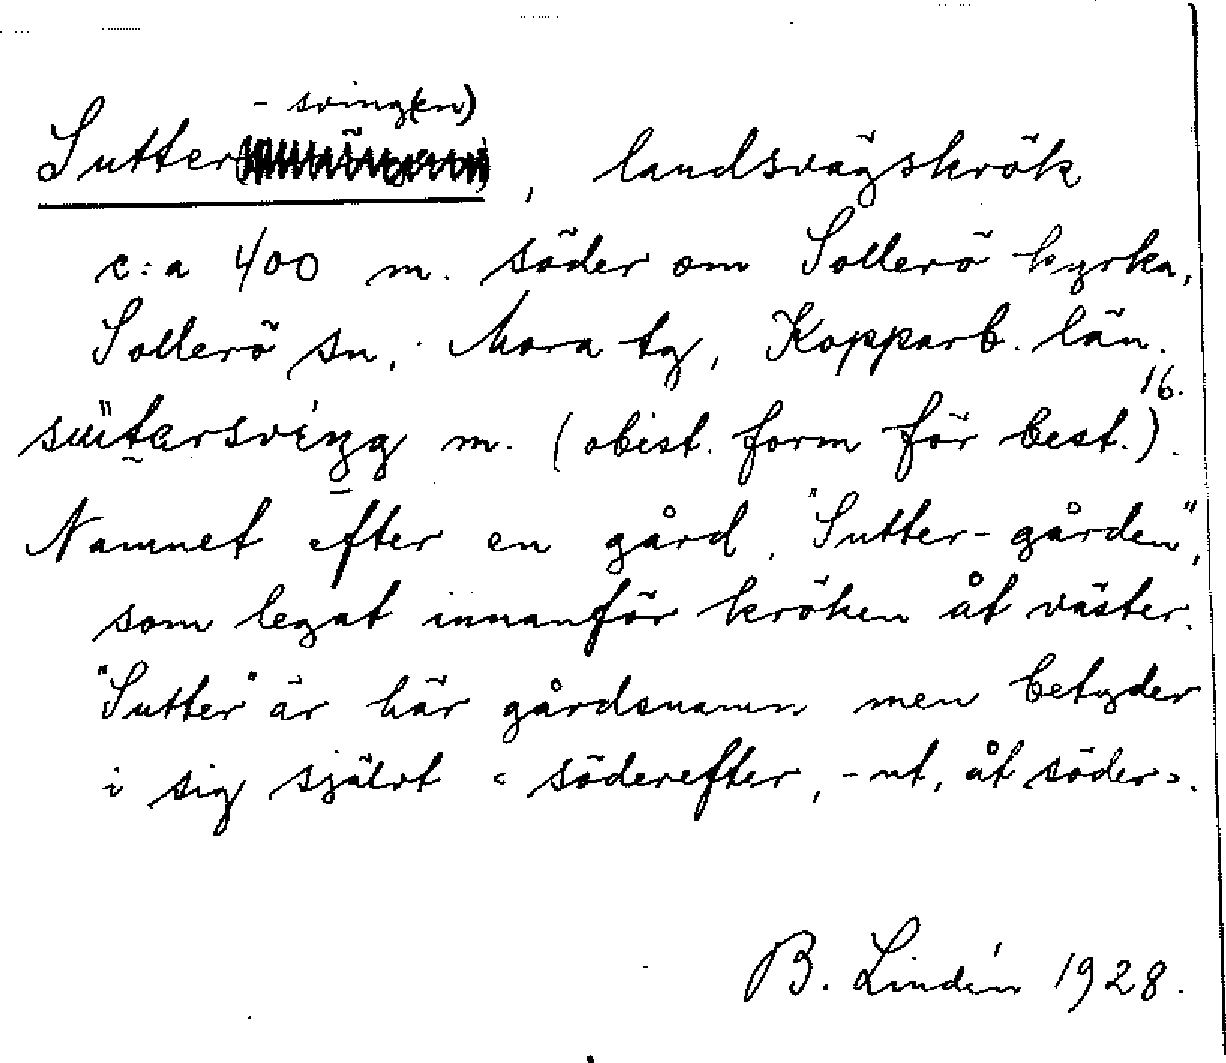 -sving(en)
Sutter , landsvägskrök
c:a 400 m. söder om Sollerö kyrka,
Sollerö sn, Mora tg, Kopparb. län.
16.
m. (obest. form för best.).
Namnet efter en gård, "Sutter-gården",
som legat innanför kröken åt väster.
"Sutter" är här gårdsnamn men betyder
i sig självt «söderefter, -ut, åt söder».
B. Lindén 1928.